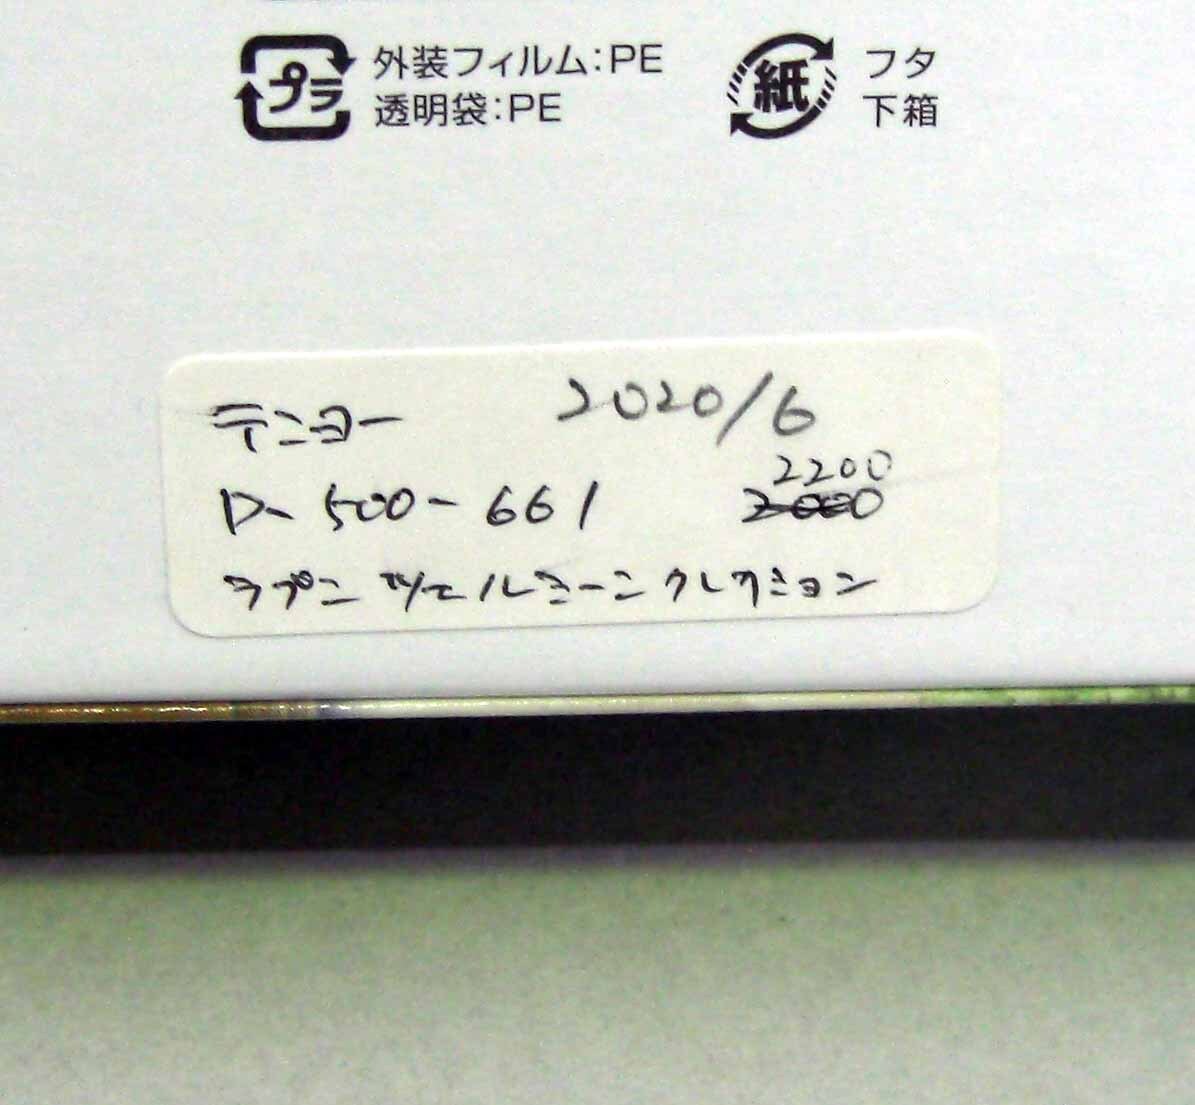 プラ 外装フィルム:PE
透明袋:PE
紙 フタ
下箱
テンヨー 2020/6
2200
D-500-661 2000
ラプンツェルシーンコレクション